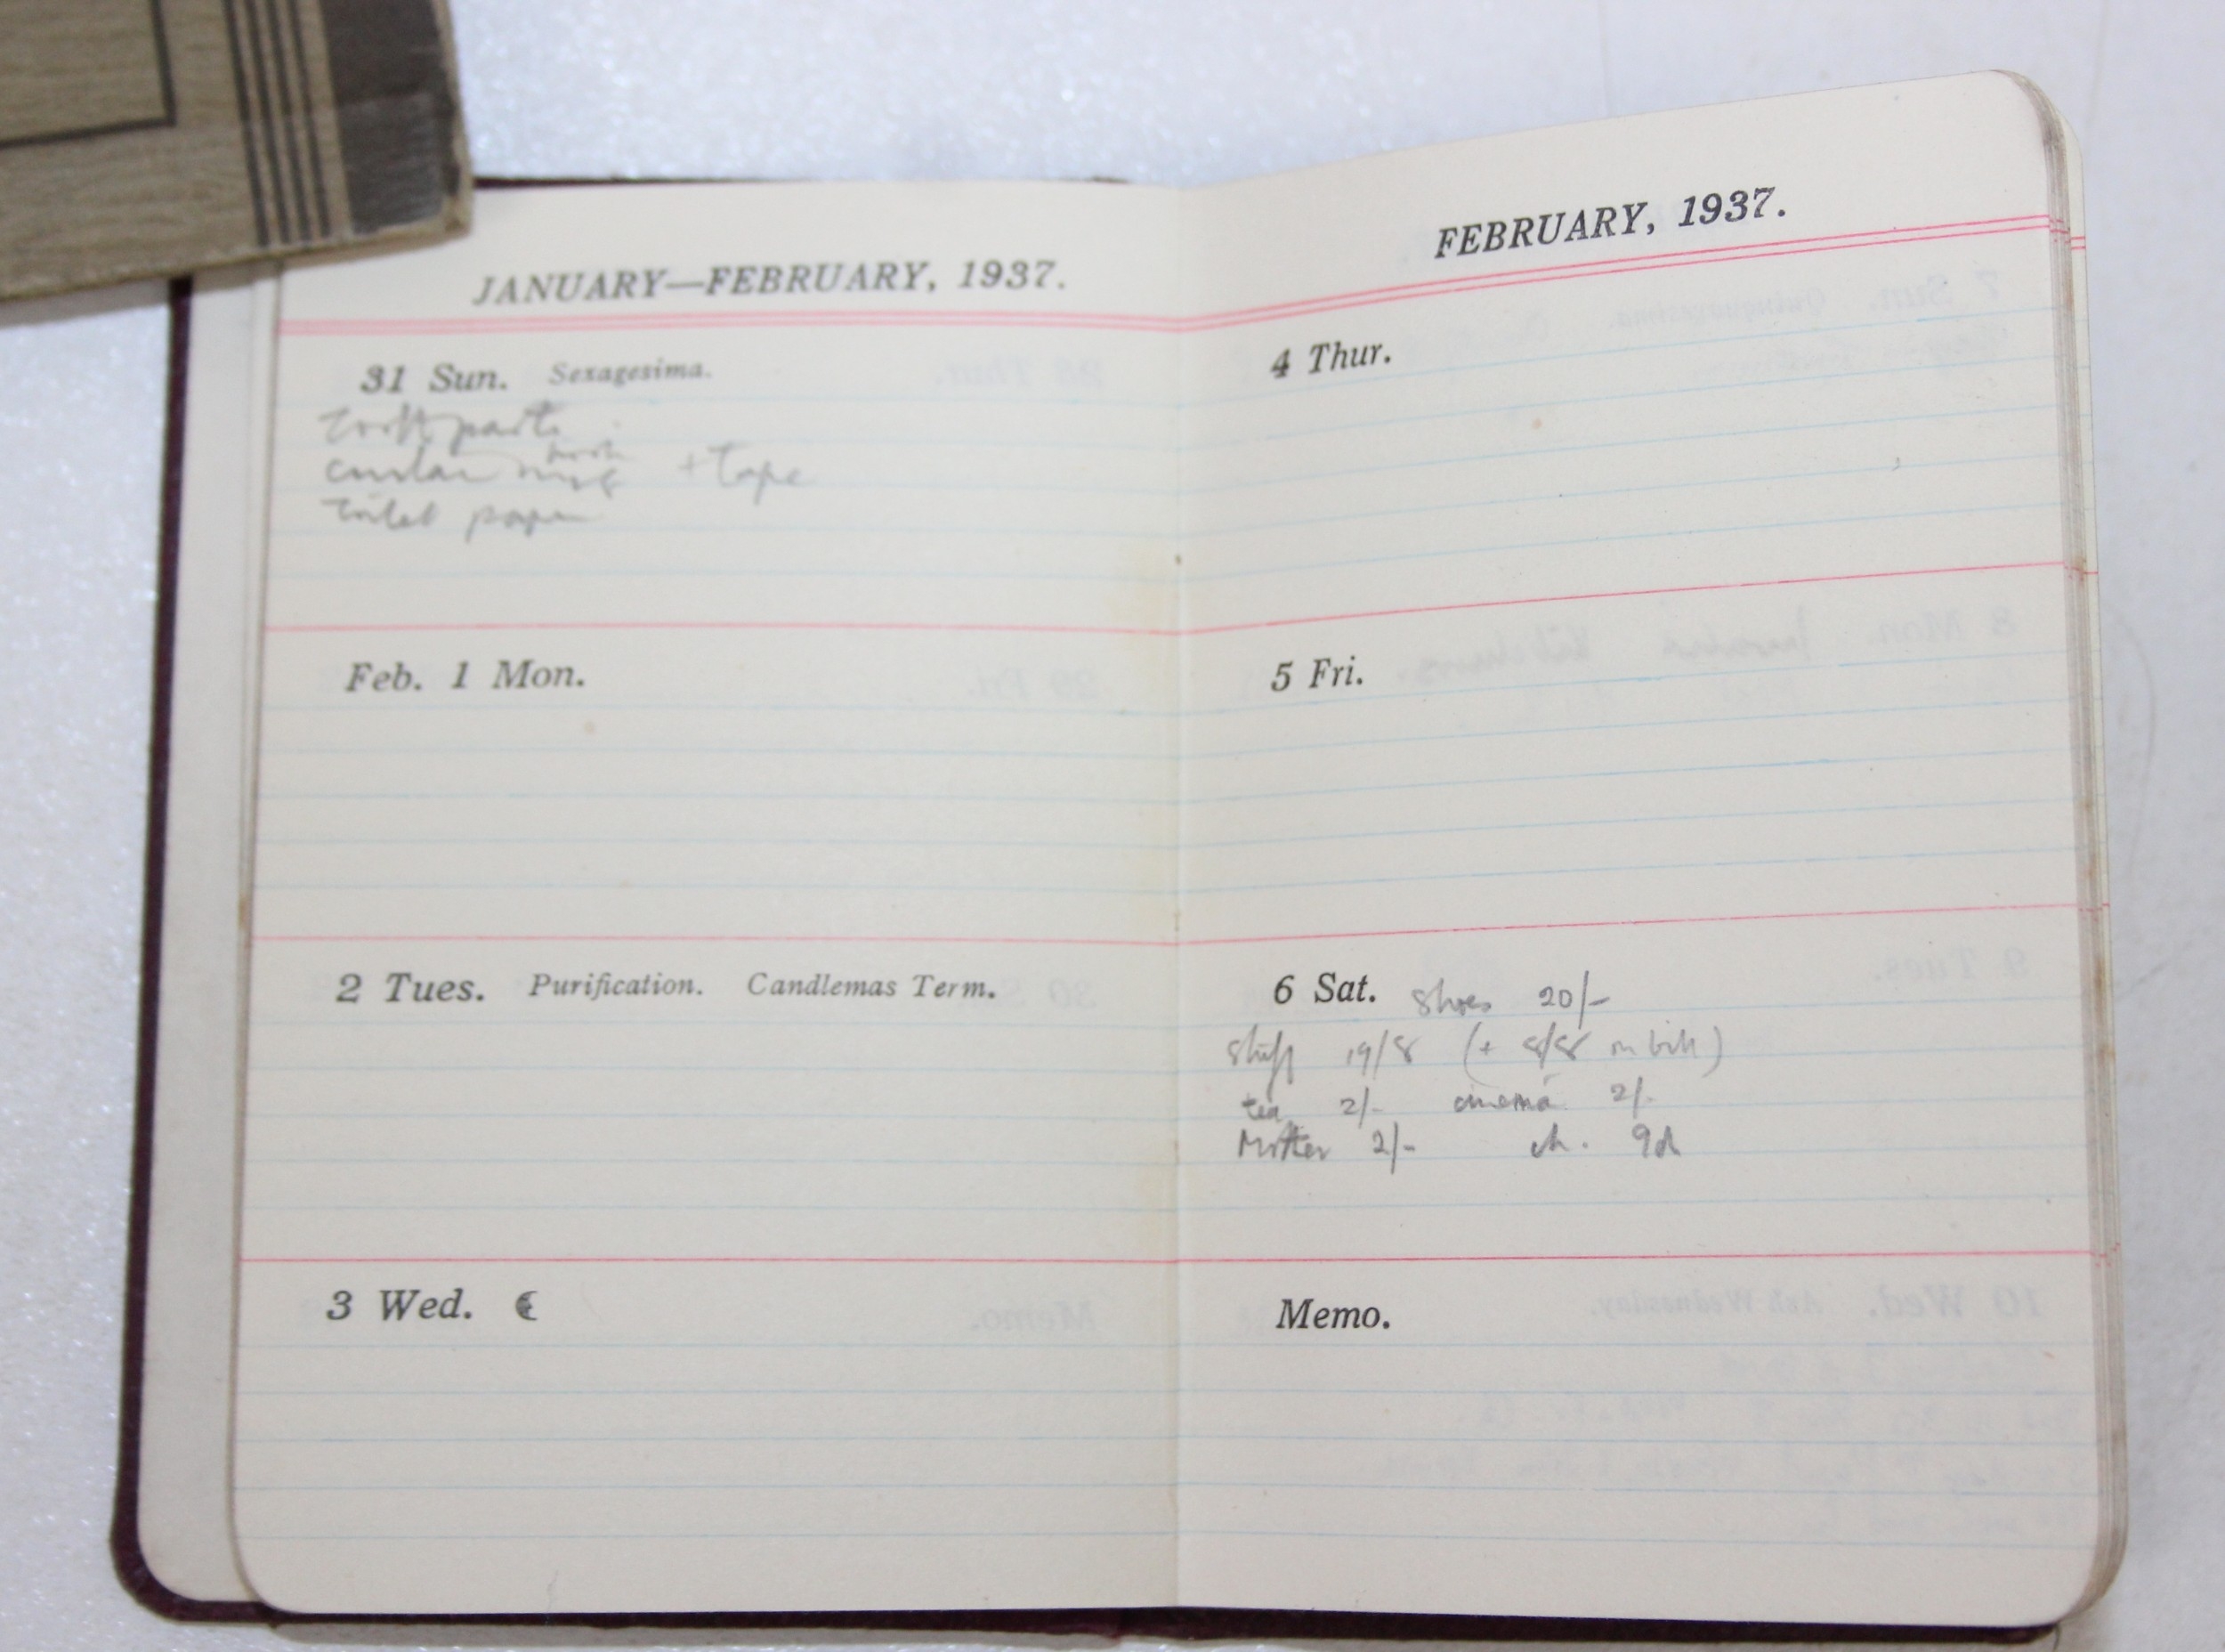 JANUARY—FEBRUARY, 1937.
31 Sun. Sexagesima.
Toothpaste
curtain rings + tape
toilet paper
Feb. 1 Mon.
2 Tues. Purification. Candlemas Term.
3 Wed. ☾
FEBRUARY, 1937.
4 Thur.
5 Fri.
6 Sat. Shoes 20/-
Stuff 19/8 (+ 8/8 on bill)
tea 2/- cinema 2/-
Mother 2/- ch. 9d
Memo.